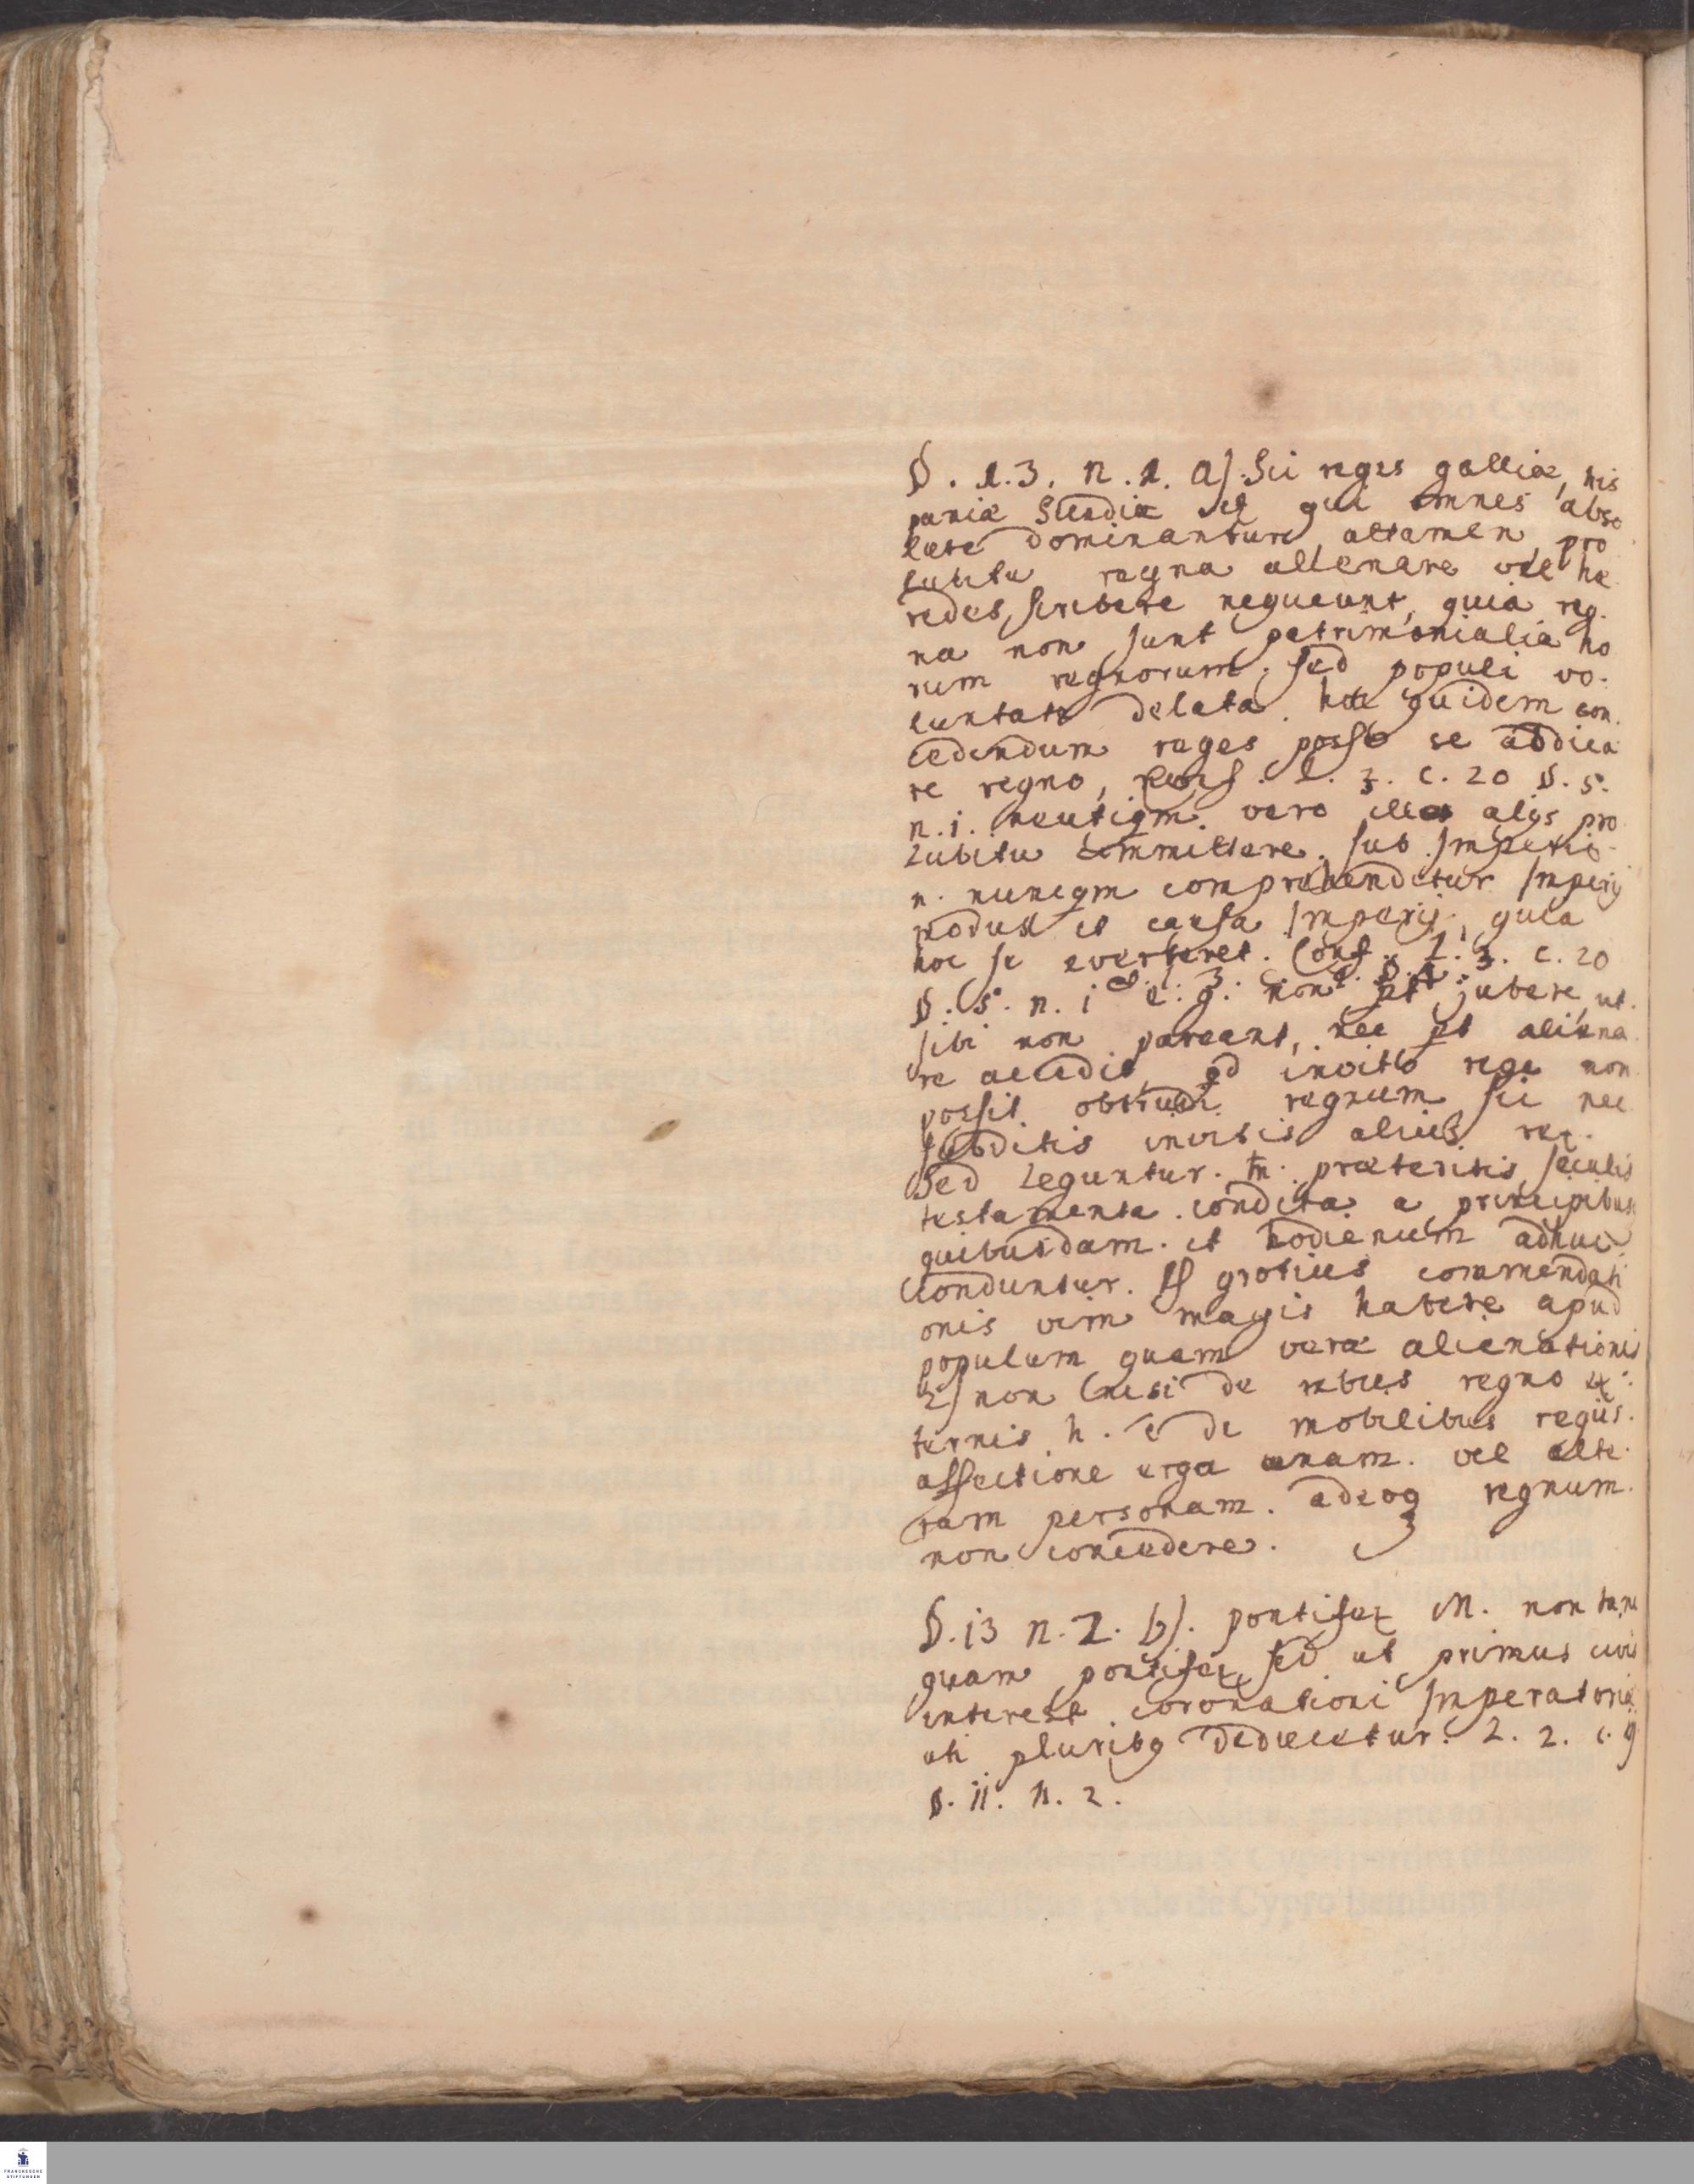 §. 13. n. 1. a) Sic reges galliæ, his
paniæ Sueciæ etc qui omnes abso
lute dominantur attamen pro
lubitu regna alienare vel hæ
redes scribere nequeunt, quia reg.
na non sunt patrimonialia ho
rum regnorum, sed populi vo.
luntate delata. hoc quidem con.
cedendum reges posse se abdica
re regno, conf. l. 3. c. 20 §. 5.
n. i. neutiqm. vero illa alijs pro
lubitu committere. sub Imperio
n. nunqm comprehenditur Imperij
modus et causa Imperij, quia
hoc se everteret. Conf. L. 3. c. 20
§. 5. n. i e. g. non pt jubere, ut
sibi non pareant, nec pt aliena
re accedit qd invito rege non
possit obtrudi regnum sic nec
subditis invitis alius rex.
Sed Leguntur tn. præteritis seculis
testamenta condita a principibus
quibusdam et hodienum adhuc
conduntur. grotius commendati
onis vim magis habere apud
populum quam veræ alienationis
2) non nisi de rebus regno ex
ternis h. e de mobilibus regiis.
affectione erga unam vel alte
ram personam. adeoq regnum
non concedere.
§. i3 n. 2. b). pontifex M. non tan
quam pontifex sed ut primus civis
interest coronationi Imperatoriæ
uti pluribq deducetur. L. 2. c. 9
§. ii. n. 2.
FRANCKESCHE
STIFTUNGEN